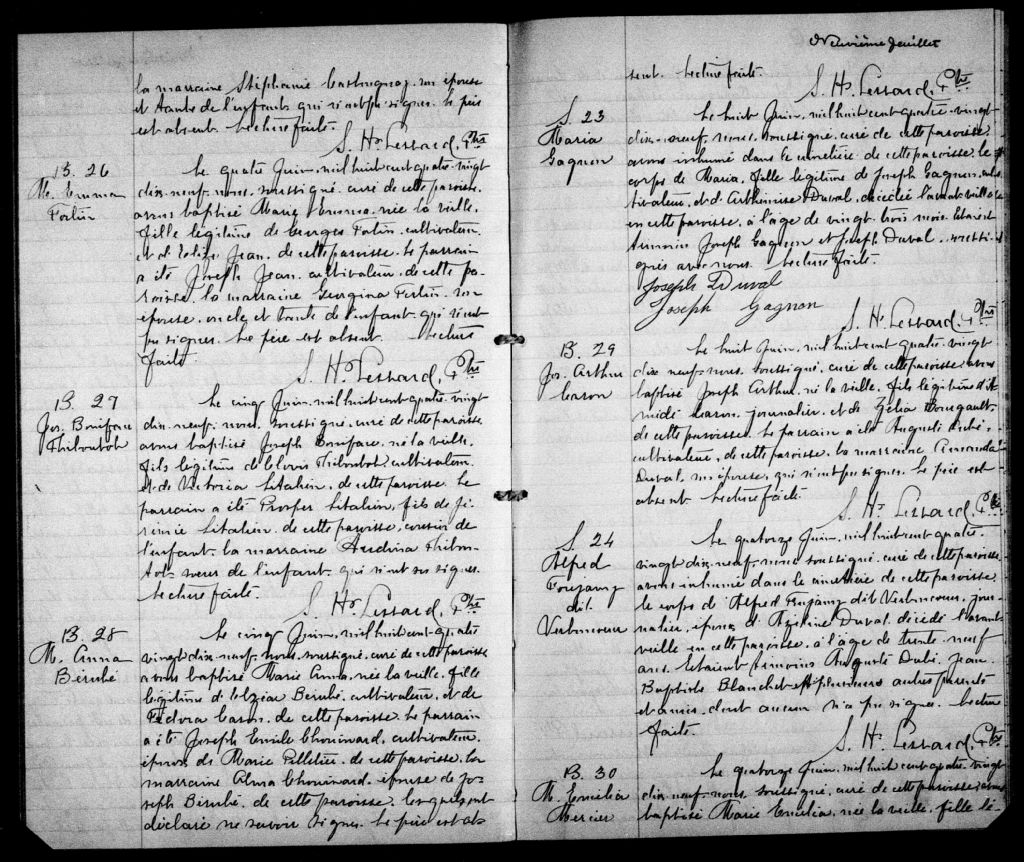 la marraine Stéphanie Castonguay, son épouse
et tante de l'enfant, qui n'ont pu signer. Le père
est absent. Lecture faite.
S. Hs. Lessard, Ptre
B. 26
M. Emma
Fortin
Le quatre Juin, mil huit cent quatre-vingt
dix-neuf, nous, soussigné, curé de cette paroisse,
avons baptisé Marie Emma, née la veille,
fille légitime de Georges Fortin, cultivateur,
et d'Eslise Jean, de cette paroisse. Le parrain
a été Joseph Jean, cultivateur, de cette pa-
roisse, la marraine Georgina Fortin, son
épouse, oncle et tante de l'enfant, qui n'ont
pu signer. Le père est absent. Lecture
faite.
S. Hs. Lessard, Ptre
B. 27
Jos. Boniface
Thiboutot
Le cinq Juin, mil huit cent quatre-vingt
dix-neuf, nous, soussigné, curé de cette paroisse,
avons baptisé Joseph Boniface, né la veille,
fils légitime de Clovis Thiboutot, cultivateur,
et de Victoria Litalien, de cette paroisse. Le
parrain a été Prosper Litalien, fils de Jé-
rémie Litalien, de cette paroisse, cousin de
l'enfant, la marraine Thibou-
tot, soeur de l'enfant, qui n'ont su signer.
Lecture faite.
S. Hs. Lessard, Ptre
B. 28
M. Anna
Bérubé
Le cinq Juin, mil huit cent quatre
vingt dix-neuf, nous, soussigné, curé de cette paroisse
avons baptisé Marie Anna, née la veille, fille
légitime d'Elzéar Bérubé, cultivateur, et de
Fédora Caron, de cette paroisse. Le parrain
a été Joseph Emile Chouinard, cultivateur,
époux de Marie Pelletier, de cette paroisse, la
marraine Alma Chouinard, épouse de Jo-
seph Bérubé, de cette paroisse, lesquels ont
déclaré ne savoir signer. Le père est ab-
Neuvième feuillet
sent. Lecture faite.
S. Hs. Lessard, Ptre
S. 23
Maria
Gagnon
Le huit Juin, mil huit cent quatre-vingt
dix-neuf, nous, soussigné, curé de cette paroisse,
avons inhumé dans le cimetière de cette paroisse, le
corps de Maria, fille légitime de Joseph Gagnon, cul-
tivateur, et d'Arthémise Duval, décédée l'avant-veille
en cette paroisse, à l'âge de vingt-trois mois. Etaient
témoins Joseph Gagnon et Joseph Duval, soussi-
gnés avec nous. Lecture faite.
Joseph Duval
Joseph Gagnon
S. Hs. Lessard, Ptre
B. 29
Jos. Arthur
Caron
Le huit Juin, mil huit cent quatre-vingt
dix-neuf, nous, soussigné, curé de cette paroisse, avons
baptisé Joseph Arthur, né la veille, fils légitime d'A-
médé Caron, journalier, et de Zélia Bourgault,
de cette paroisse. Le parrain a été Auguste Dubé,
cultivateur, de cette paroisse, la marraine Amanda
Duval, son épouse, qui n'ont pu signer. Le père est
absent. Lecture faite.
S. Hs. Lessard, Ptre
S. 24
Alfred
Fougany
dit
Verboncoeur
Le quatorze Juin, mil huit cent quatre-
vingt dix-neuf, nous, soussigné, curé de cette paroisse,
avons inhumé dans le cimetière de cette paroisse,
le corps d'Alfred dit Verboncoeur, jour-
nalier, époux d' Duval, décédé l'avant-
veille en cette paroisse, à l'âge de trente-neuf
ans. Etaient témoins Auguste Dubé, Jean
Baptiste Blanchet et plusieurs autres parents
et amis, dont aucun n'a pu signer. Lecture
faite.
S. Hs. Lessard, Ptre
B. 30
M. Emélia
Mercier
Le quatorze Juin, mil huit cent quatre-vingt
dix-neuf, nous, soussigné, curé de cette paroisse, avons
baptisé Marie Emélia, née la veille, fille lé-